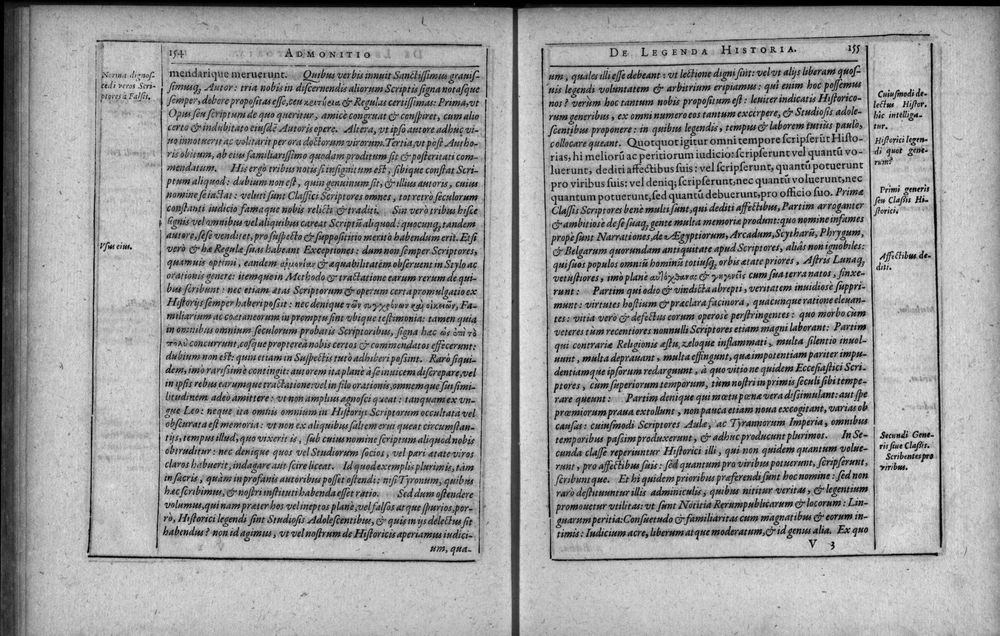 154
ADMONITIO
Norma dignos-
cēdi veros Scri-
ptores à Falsis.
Vsus eius.
mendarique meruerunt. Quibus verbis innuit Sanctissimus grauis-
simusq́ Autor: tria nobis in discernendis aliorum Scriptis signa notasque
semper, debere propositas esse, ceu & Regulas certissimas: Prima, vt
Opus seu scriptum de quo queritur, amicè congruat & conspiret, cum alio
certo & indubitato eiusdē Autoris opere. Altera, vt ipso autore adhuc vi-
uo innotuerit ac volitarit per ora doctorum virorum. Tertia, vt post Autho-
ris obitum, ab eius familiarissimo quodam proditum sit & posteritati com-
mendatum. His ergò tribus notis si insignitum est, sibique constat Scri-
ptum aliquod: dubium non est, quin genuinum sit, & illius autoris, cuius
nomine se iactat: veluti sunt Classici Scriptores omnes, tot retrò seculorum
constanti iudicio famaque nobis relicti & traditi. Sin verò tribus hisce
signis vel omnibus vel aliquibus careat Scriptū aliquod: quocunq́, tandem
autore, sese venditet, pro suspecto & supposititio meritò habendum erit. Et si
verò & hæ Regulæ suas habeant Exceptiones: dum non semper Scriptores,
quamuis optimi, eandem & æquabilitatem obseruent in Stylo ac
orationis genere: itemque in Methodo & tractatione earum rerum de qui-
bus scribunt: nec etiam ætas Scriptorum & operum certa promulgatio ex
Historijs semper haberi possit: nec denique τῶν συγχρόνων καὶ οἰκείων, Fa-
miliarium ac coætaneorum in promptu sint vbique testimonia: tamen quia
in omnibus omnium seculorum probatis Scriptoribus, signa hæc ὡς ἐπὶ τὸ
πολὺ concurrunt, eosque proptereà nobis certos & commendatos effecerunt:
dubium non est: quin etiam in Suspectis tutò adhiberi possint. Rarò siqui-
dem, imò rarissimè contingit: autorem ita planè à se inuicem discrepare, vel
in ipsis rebus earumque tractatione: vel in filo orationis, omnemque sui simi-
litudinem adeò amittere: vt non amplius agnosci queat: tanquam ex vn-
gue Leo: neque ita omnis omnium in Historijs Scriptorum occultata vel
obscurata est memoria: vt non ex aliquibus saltem erui queat circumstan-
tijs, tempus illud, quo vixerit is, sub cuius nomine scriptum aliquod nobis
obtruditur: nec denique quos vel Studiorum socios, vel pari ætate viros
claros habuerit, indagare aut scire liceat. Id quod exemplis plurimis, tàm
in sacris, quàm in profanis autoribus posset ostendi: nisi Tyronum, quibus
hæc scribimus, & nostri instituti habenda esset ratio. Sed dum ostendere
volumus, qui nam præter hos vel ineptos planè, vel falsos atque spurios, por-
rò, Historici legendi sint Studiosis Adolescentibus, & quis in ijs delectus sit
habendus? non id agimus, vt vel nostrum de Historicis aperiamus iudici-
um, qua-
DE LEGENDA HISTORIA.
155
um, quales illi esse debeant: vt lectione digni sint: vel vt alijs liberam quos-
uis legendi voluntatem & arbitrium eripiamus: qui enim hoc possemus
nos? verùm hoc tantum nobis propositum est: leuiter indicatis Historico-
rum generibus, ex omni numero eos tantum excerpere, & Studiosis adole-
scentibus proponere: in quibus legendis, tempus & laborem tutius paulò,
collocare queant. Quotquot igitur omni tempore scripserūt Histo-
rias, hi meliorū ac peritiorum iudicio: scripserunt vel quantū vo-
luerunt, dediti affectibus suis: vel scripserunt, quantū potuerunt
pro viribus suis: vel deniq; scripserunt, nec quantū voluerunt, nec
quantum potuerunt, sed quantū debuerunt, pro officio suo. Primæ
Classis Scriptores benè multi sunt, qui dediti affectibus, Partim arroganter
& ambitiosè de se suaq́, gente multa memoriæ produnt: quo nomine infames
propè sunt Narrationes, de Ægyptiorum, Arcadum, Scytharū, Phrygum,
& Belgarum quorundam antiquitate apud Scriptores, aliàs non ignobiles:
qui suos populos omniū hominū totiusq́, orbis ætate priores, Astris Lunaq́,
vetustiores, imò planè αὐτόχθονας & γηγενεῖς cum sua terra natos, finxe-
runt: Partim qui odio & vindicta abrepti, veritatem inuidiosè suppri-
munt: virtutes hostium & præclara facinora, quacunque ratione eleuan-
tes: vitia verò & defectus eorum operosè perstringentes: quo morbo cùm
veteres tùm recentiores nonnulli Scriptores etiam magni laborant: Partim
qui contrariæ Religionis æstu, zeloque inflammati, multa silentio inuol-
uunt, multa deprauant, multa effingunt, quæ impotentiam pariter impu-
dentiamque ipsorum redarguunt, à quo vitio ne quidem Ecclesiastici Scri-
ptores, cùm superiorum temporum, tùm nostri in primis seculi sibi tempe-
rare queunt: Partim denique qui metu pœnæ vera dissimulant: aut spe
præmiorum praua extollunt, non pauca etiam noua excogitant, varias ob
causas: cuiusmodi Scriptores Aulæ, ac Tyrannorum Imperia, omnibus
temporibus passim produxerunt, & adhuc producunt plurimos. In Se-
cunda classe reperiuntur Historici illi, qui non quidem quantum volue-
runt, pro affectibus suis: sed quantum pro viribus potuerunt, scripserunt,
scribuntque. Et hi quidem prioribus præferendi sunt hoc nomine: sed non
rarò destituuntur illis adminiculis, quibus nititur veritas, & legentium
promouetur vtilitas: vt sunt Notitia Rerumpublicarum & locorum: Lin-
guarum peritia: Consuetudo & familiaritas cum magnatibus & eorum in-
timis: Iudicium acre, liberum atque moderatum, & id genus alia. Ex quo
V 3
Cuiusmodi de-
lectus Histor.
hîc intelliga-
tur.
Historici legen-
di quot gene-
rum?
Primi generis
seu Classis Hi-
storici.
Affectibus de-
diti.
Secundi Gene-
ris siue Classis.
Scribentes pro
viribus.